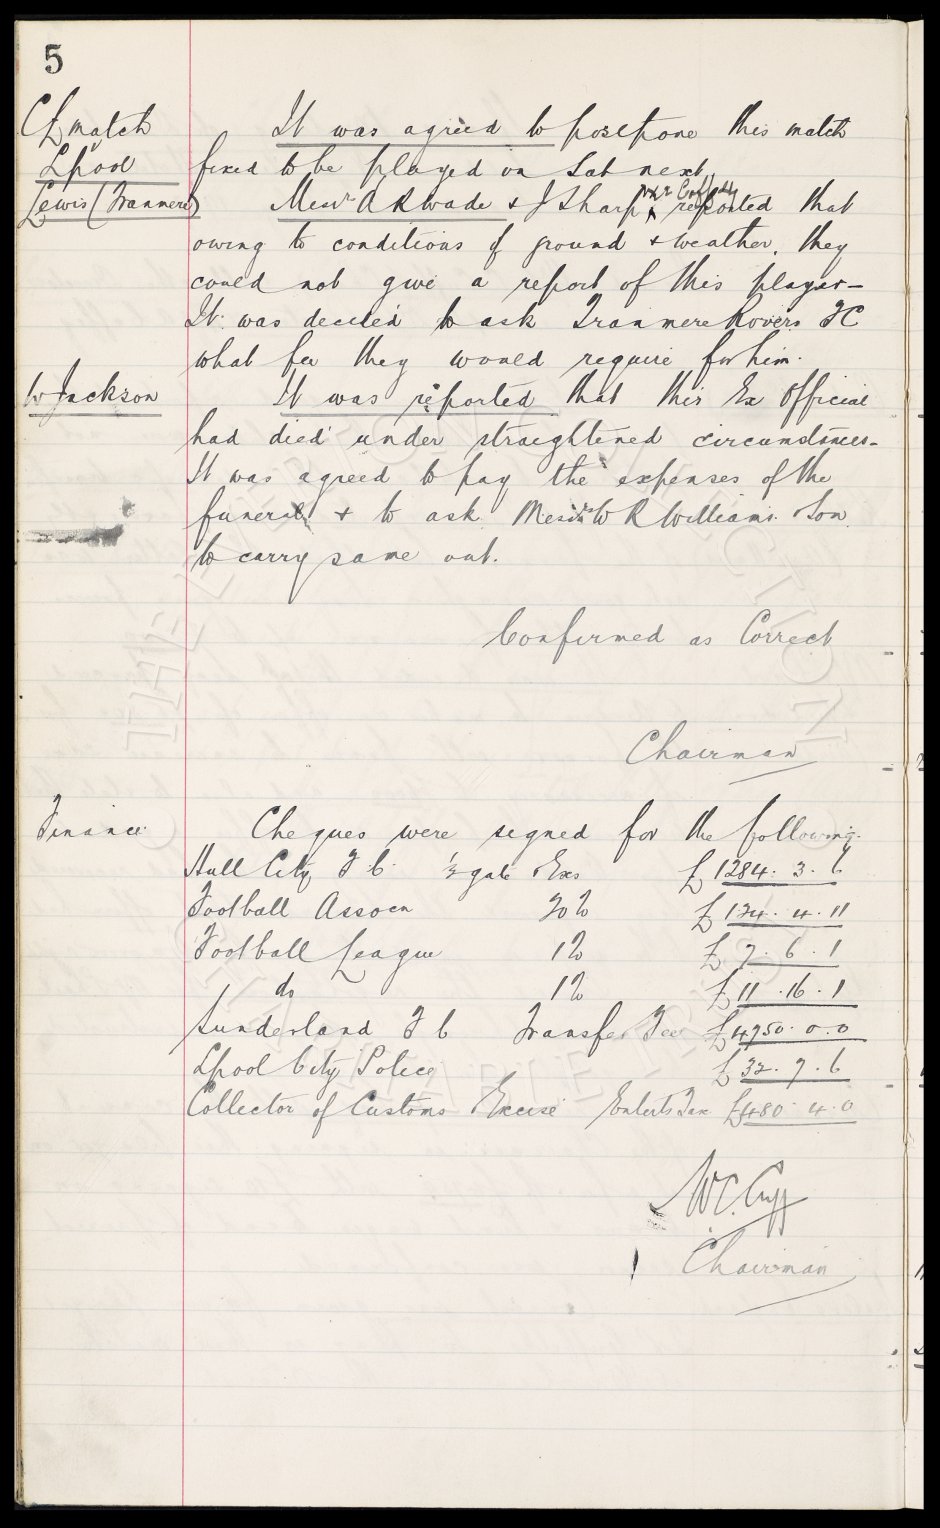 5
CL match It was agreed to postpone this match
Lpool fixed to be played on Sat next.
Lewis (Tranmere) Messrs A R Wade & J Sharp reported that
owing to conditions of ground & weather, they
could not give a report of this player -
It was decided to ask Tranmere Rovers FC
what fee they would require for him.
W Jackson It was reported that this Ex Official
had died under straightened circumstances -
It was agreed to pay the expenses of the
funeral & to ask Messrs W R Williams & Son
to carry same out.
Confirmed as Correct
Chairman
Finance Cheques were signed for the following.
Hull City F C ½ gate Exs £1284. 3. 6
Football Assocn 20% £134. 4. 11
Football League 1% £7. 6. 1
do 1% £11. 16. 1
Sunderland F C Transfer Fee £4750. 0. 0
Lpool City Police £32. 7. 6
Collector of Customs Excise Enterts Tax £480. 4. 0
W.C. Cuff
Chairman
THE EVERTON COLLECTION CHARITABLE TRUST